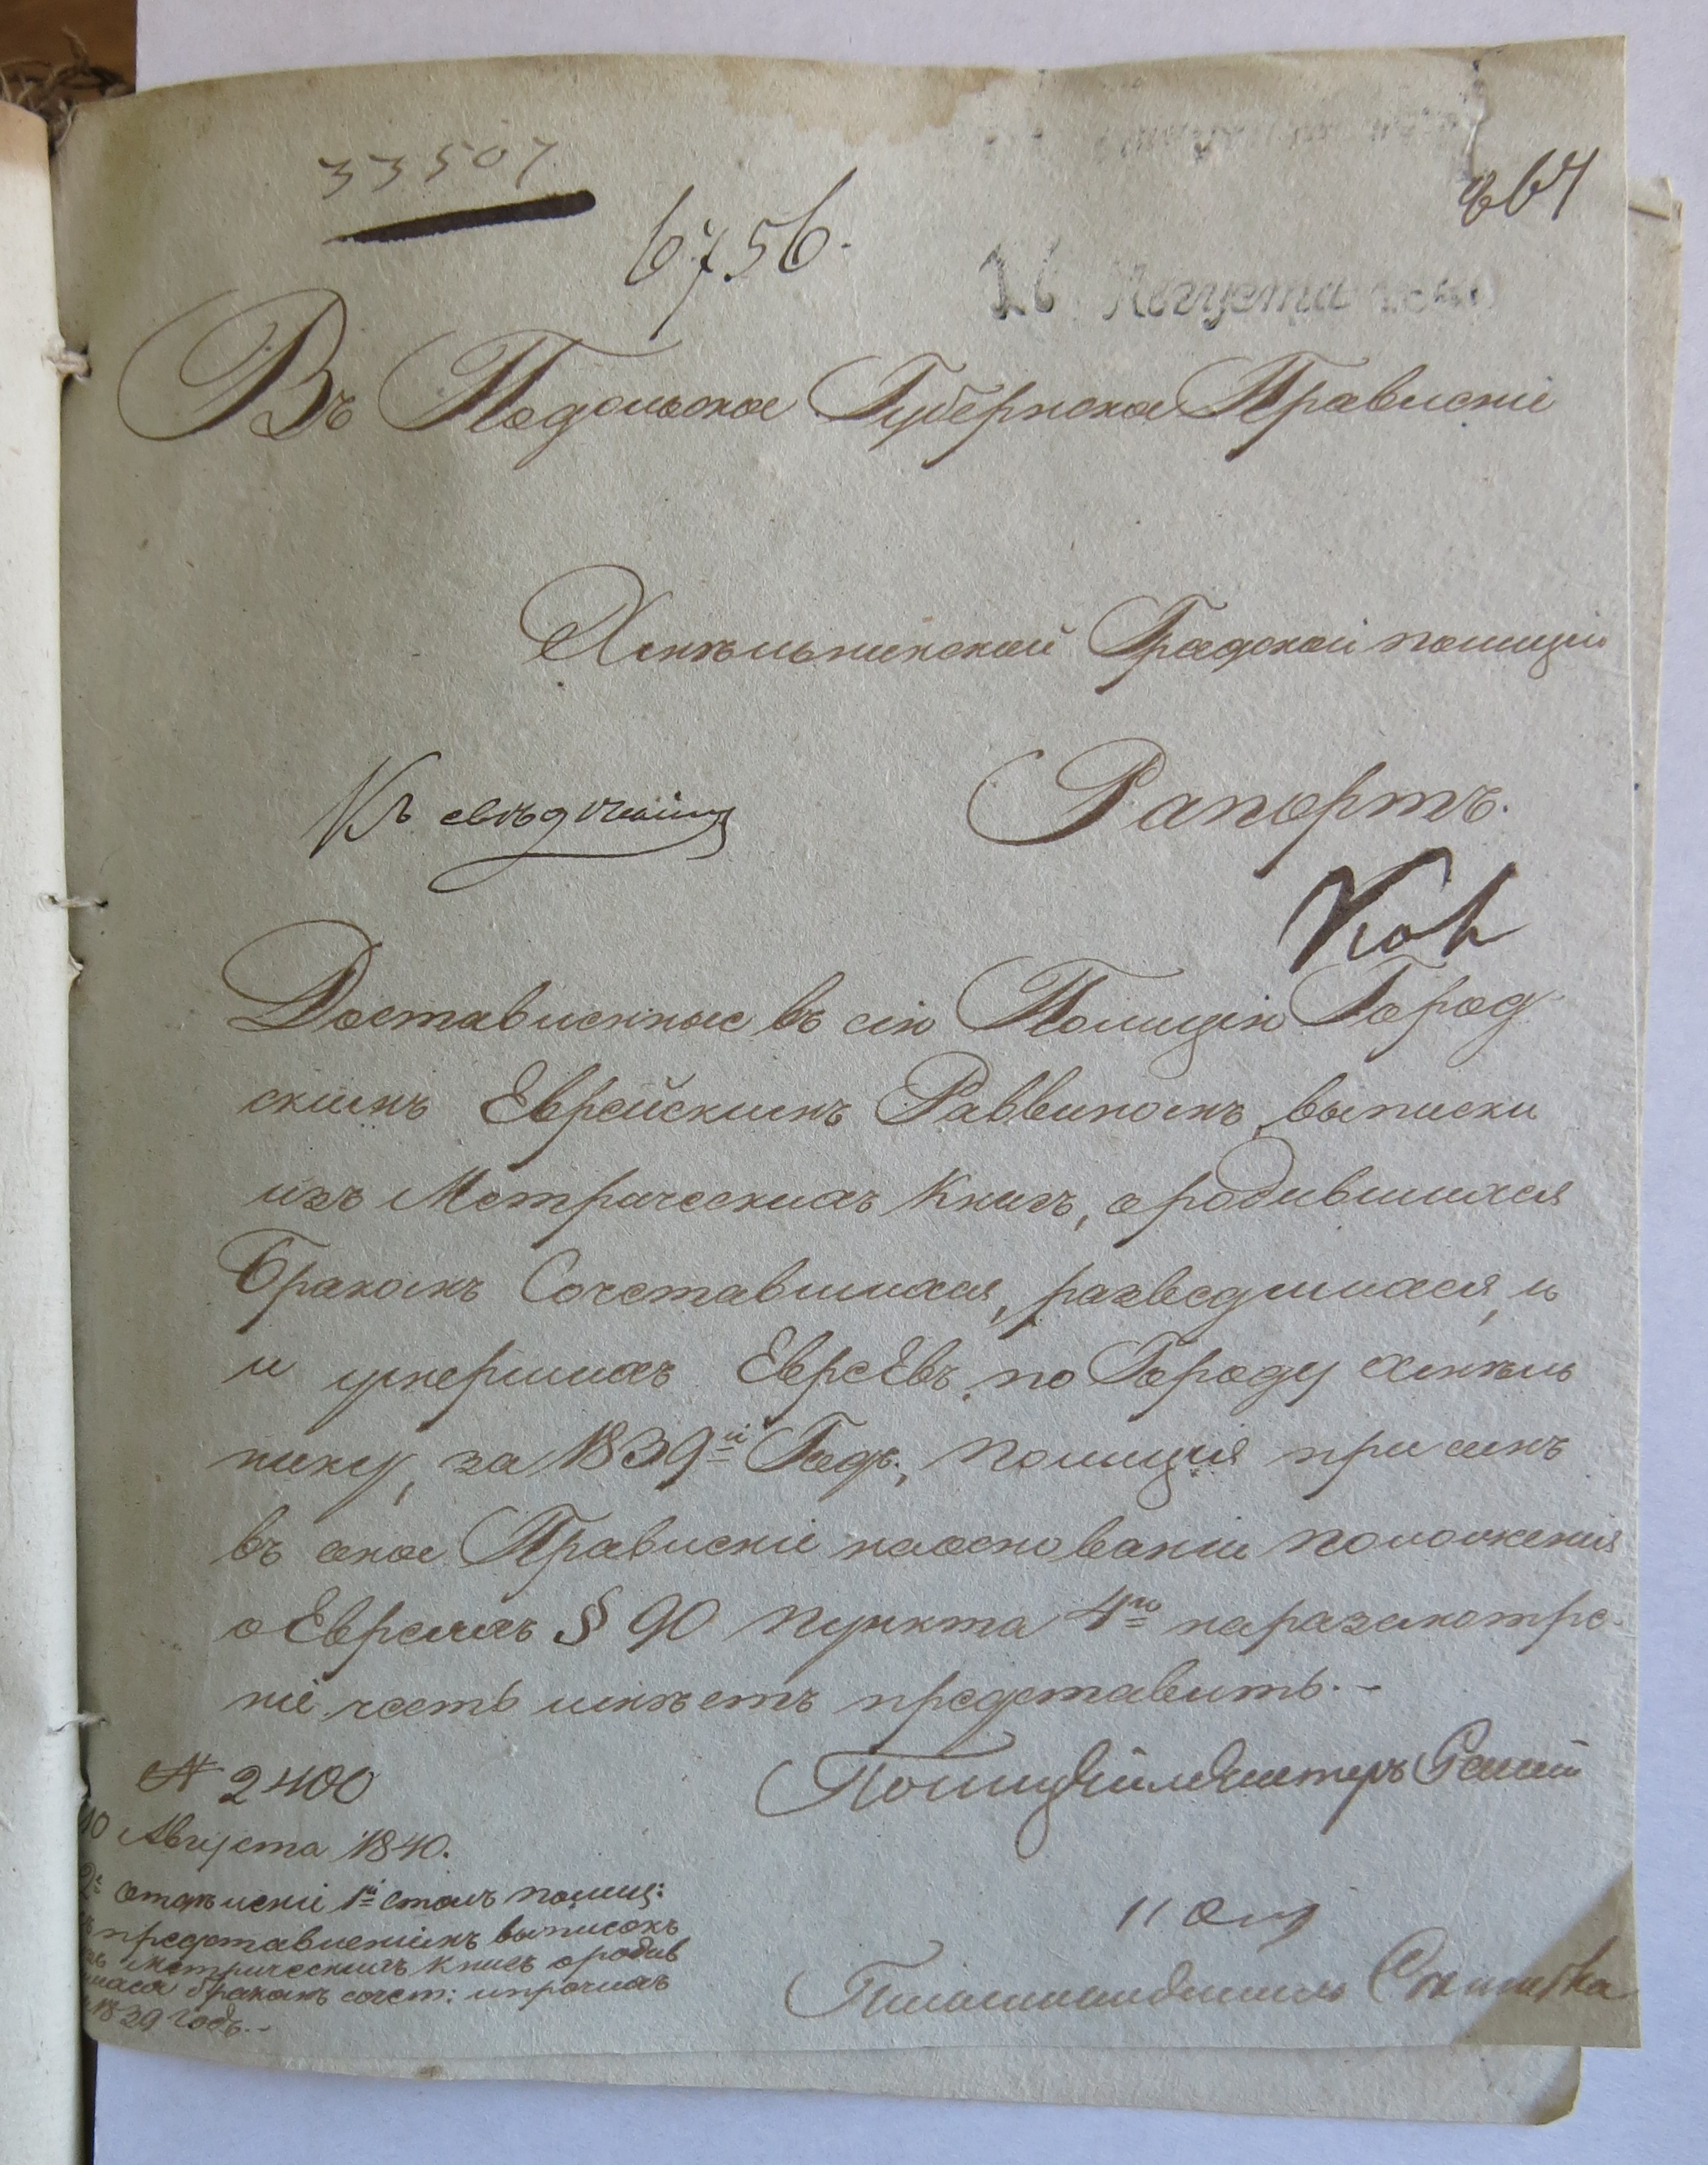 33507
6756.
264
16 Августа 1840
Въ Подольское Губернское Правленіе
Хмѣльницкой Градской полиціи
Къ свѣдѣнію
Рапортъ.
Доставленные въ сію Полицію Город
скимъ Еврейскимъ Раввиномъ, выписки
изъ Метрическихъ Книгъ, о родившихся
Бракомъ Сочетавшихся, разведшихся, и
и умершихъ Евреевъ, по Городу Хмѣль
нику, за 1839й Годъ, полиція при семъ
въ оное Правленіе на основаніи положенія
о Евреяхъ § 90 пункта 4го на разсмотре-
ніе честь имѣетъ представить.-
№ 2400
Полицийместеръ
10 Августа 1840.
2е отдѣленіе 1й столъ полиц:
съ представленіемъ выписокъ
изъ метрическихъ книгъ о родив
шихся бракомъ сочет: и прочихъ
за 1839 годъ.-